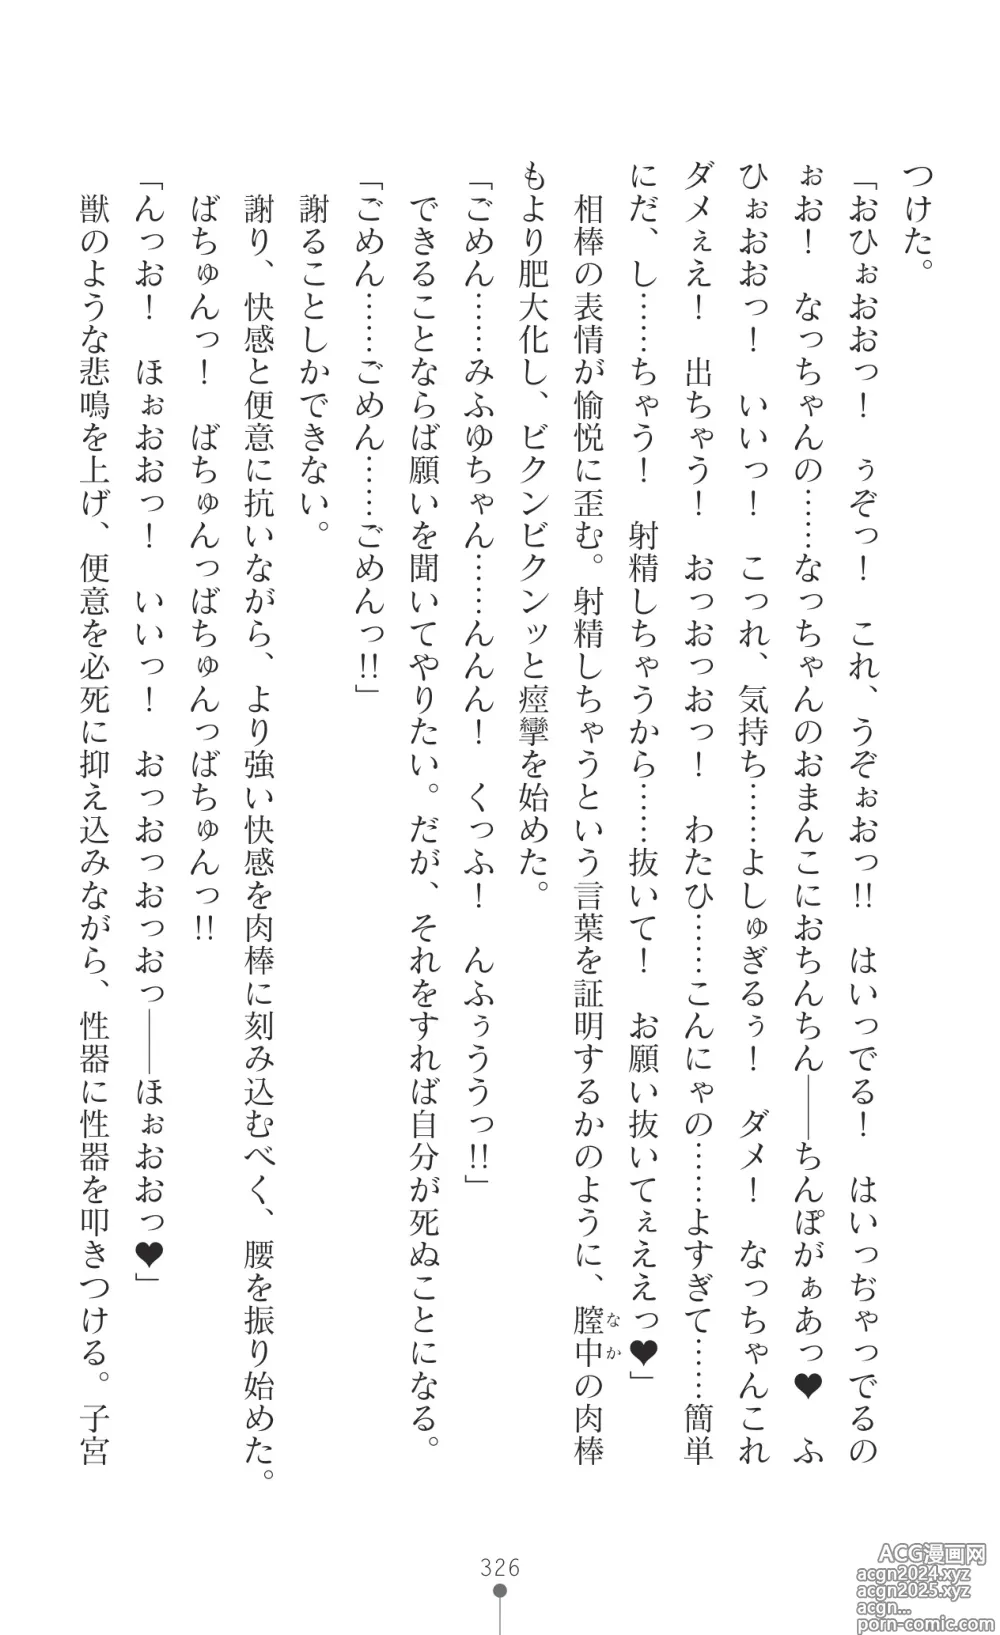 つけた。
「おひぉおおっ！　ぅぞっ！　これ、うぞぉおっ!!　はいっでる！　はいっぢゃっでるの
ぉお！　なっちゃんの……なっちゃんのおまんこにおちんちん――ちんぽがぁあっ♥　ふ
ひぉおおっ！　いいっ！　こっれ、気持ち……よしゅぎるぅ！　ダメ！　なっちゃんこれ
ダメぇえ！　出ちゃう！　おっおっおっ！　わたひ……こんにゃの……よすぎて……簡単
にだ、し……ちゃう！　射精しちゃうから……抜いて！　お願い抜いてぇええっ♥」
　相棒の表情が愉悦に歪む。射精しちゃうという言葉を証明するかのように、膣中の肉棒
なか
もより肥大化し、ビクンビクンッと痙攣を始めた。
「ごめん……みふゆちゃん……んんん！　くっふ！　んふぅううっ!!」
　できることならば願いを聞いてやりたい。だが、それをすれば自分が死ぬことになる。
「ごめん……ごめん……ごめんっ!!」
　謝ることしかできない。
　謝り、快感と便意に抗いながら、より強い快感を肉棒に刻み込むべく、腰を振り始めた。
　ばちゅんっ！　ばちゅんっばちゅんっばちゅんっ!!
「んっお！　ほぉおおっ！　いいっ！　おっおっおっおっ――ほぉおおっ♥」
　獣のような悲鳴を上げ、便意を必死に抑え込みながら、性器に性器を叩きつける。子宮
326
ACG漫画网
acgn2024.xyz
acgn2025.xyz
acgn...
porn-comic.com